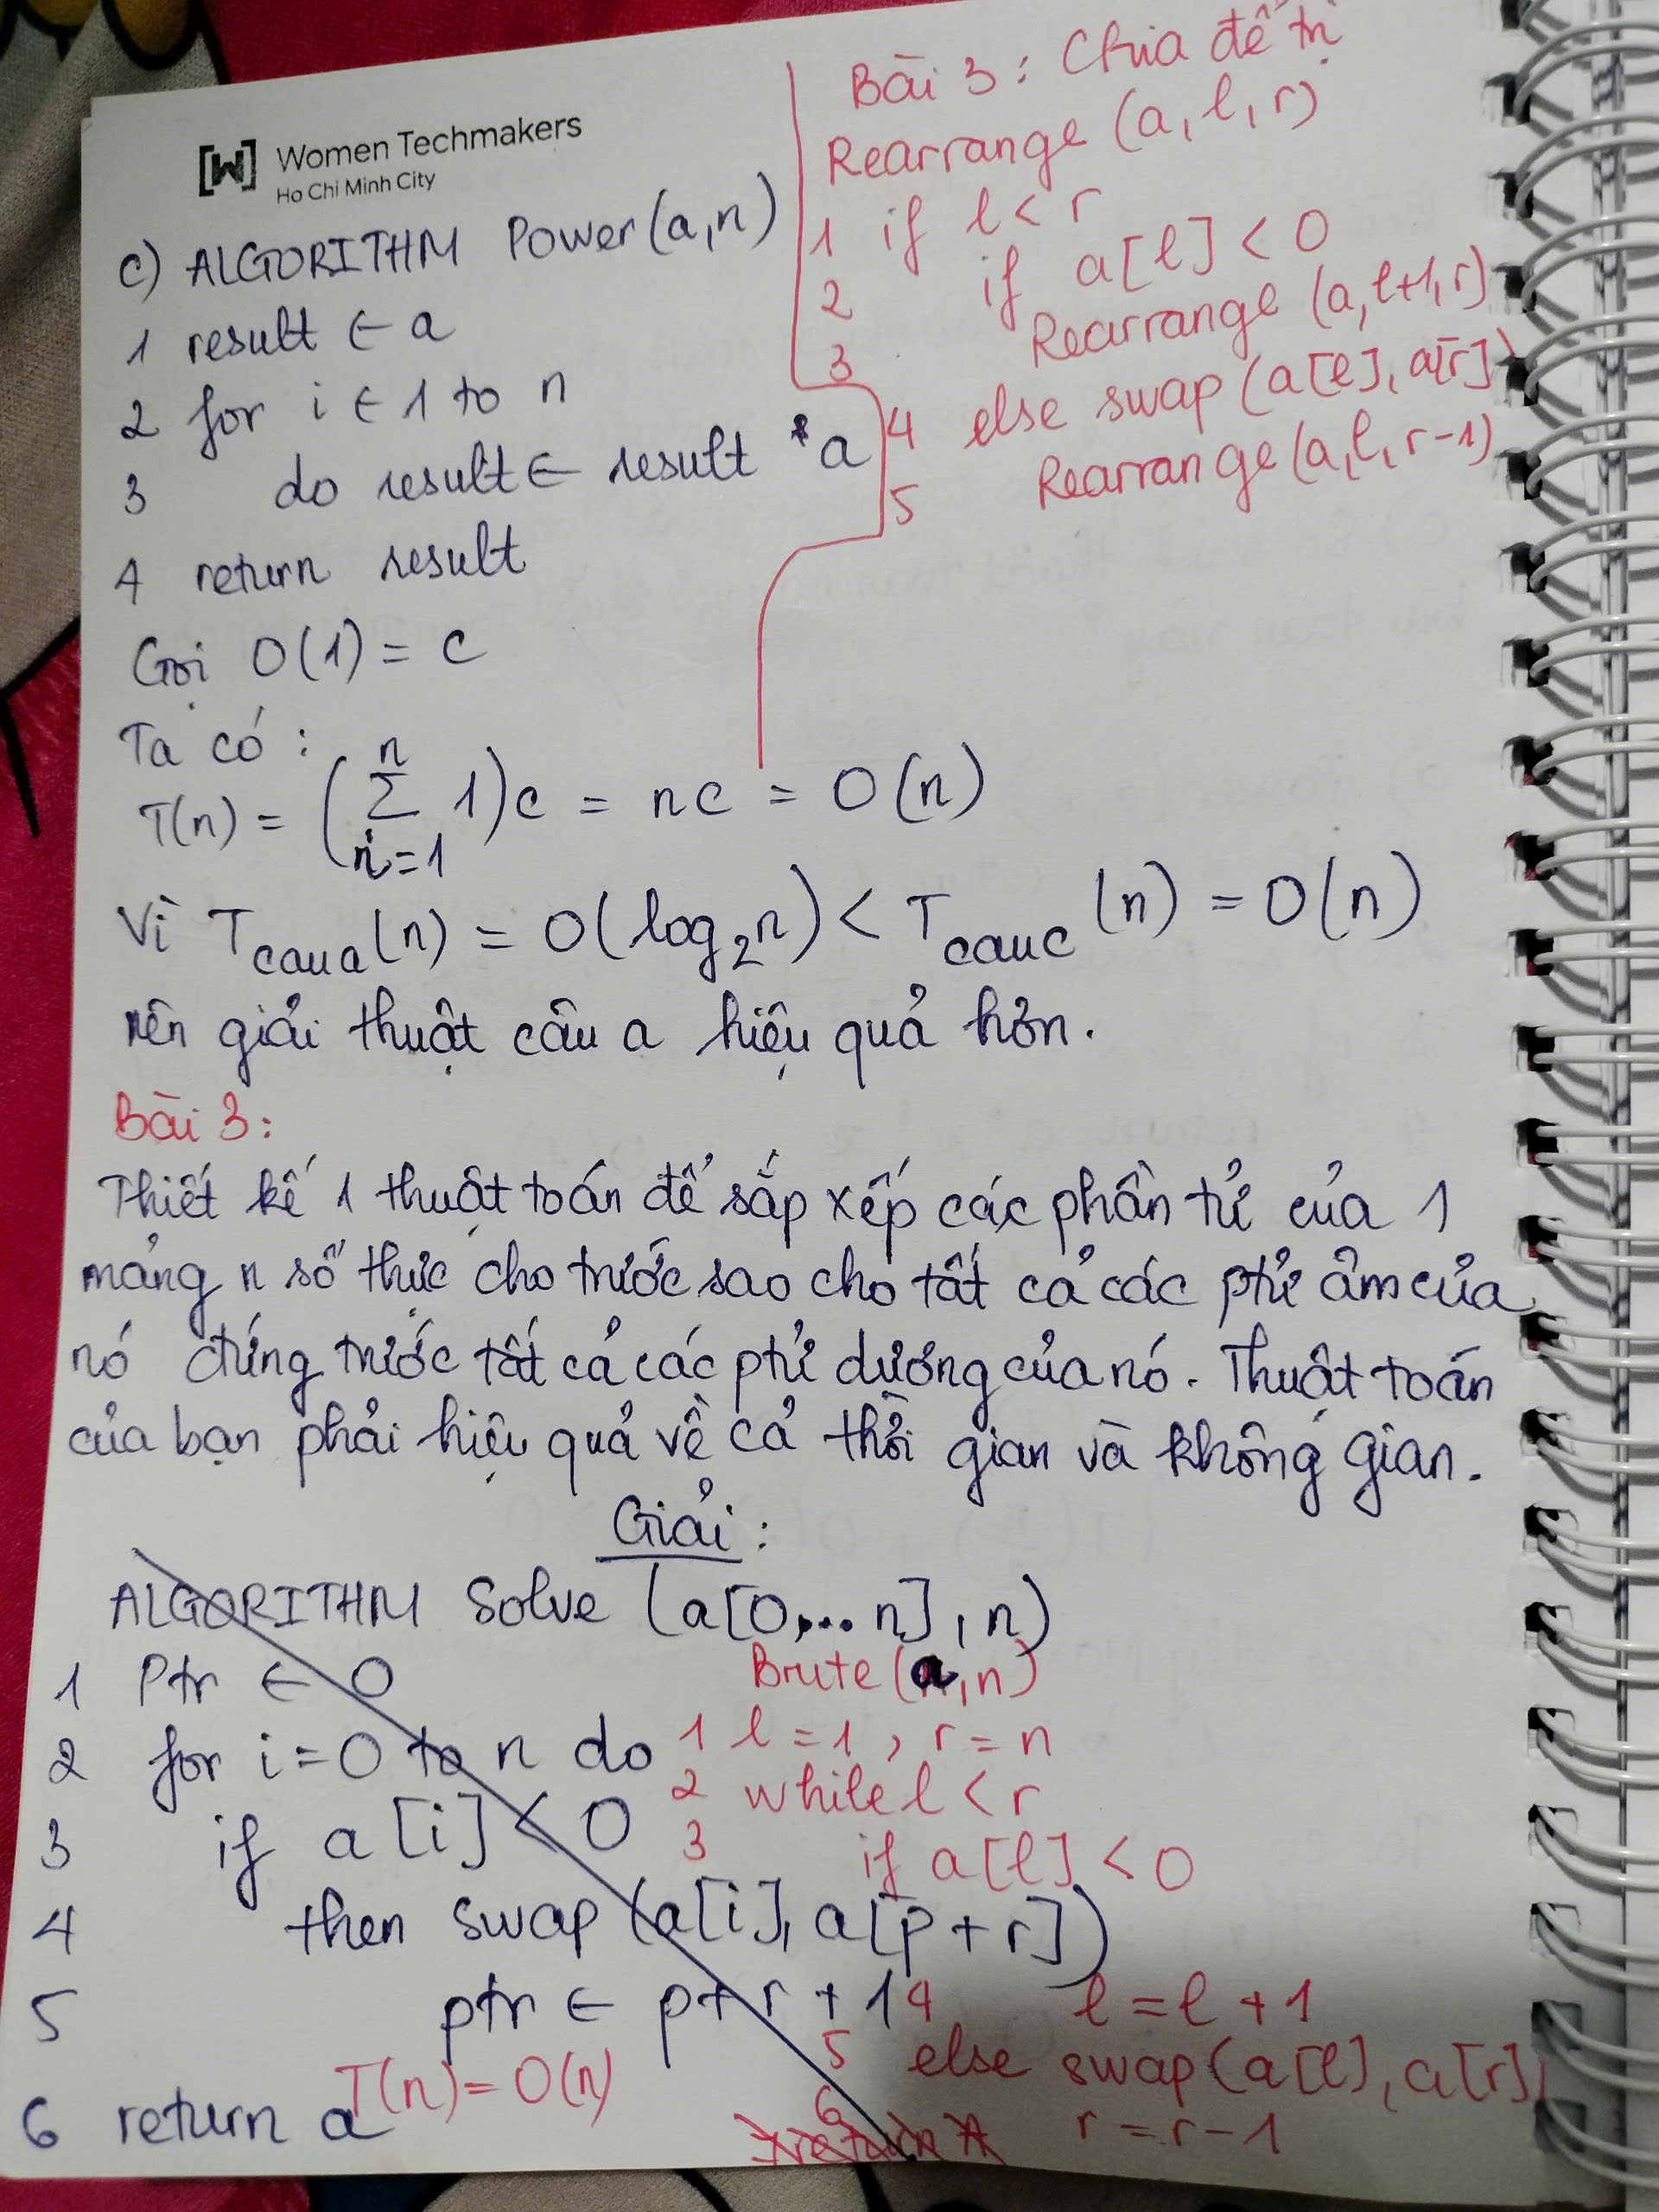 Women Techmakers
Ho Chi Minh City
c) ALGORITHM Power(a,n)
1 result ← a
2 for i ← 1 to n
3 do result ← result * a
4 return result
Gọi O(1) = c
Ta có:
T(n) = (∑ⁿₙ₌₁ 1)c = nc = O(n)
Vì T câu a (n) = O(log₂n) < T câu c (n) = O(n)
nên giải thuật câu a hiệu quả hơn.
Bài 3: Chia để trị
Rearrange (a, l, r)
1 if l < r
2 if a[l] < 0
3 Rearrange (a, l+1, r)
4 else swap (a[l], a[r])
5 Rearrange (a, l, r-1)
Bài 3:
Thiết kế 1 thuật toán để sắp xếp các phần tử của 1
mảng n số thực cho trước sao cho tất cả các ptử âm của
nó đứng trước tất cả các ptử dương của nó. Thuật toán
của bạn phải hiệu quả về cả thời gian và không gian.
Giải:
ALGORITHM Solve (a[0,... n], n)
1 Ptr ← 0
2 for i = 0 to n do
3 if a[i] < 0
4 then swap (a[i], a[p+r])
5 ptr ← p+r + 1
6 return a
T(n) = O(n)
Brute (a, n)
1 l = 1, r = n
2 while l < r
3 if a[l] < 0
4 l = l + 1
5 else swap (a[l], a[r])
6 r = r - 1
7 return A